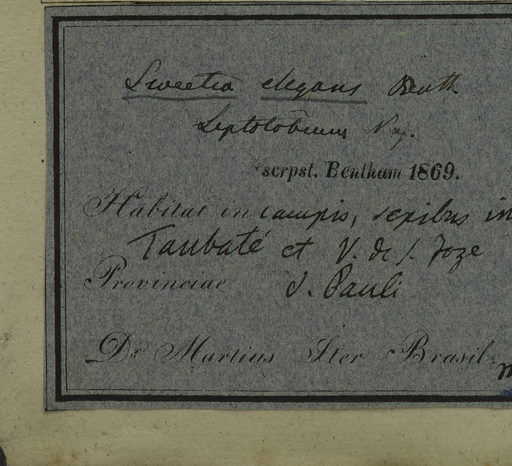 Sweetia elegans Benth
Leptolobium Vog.
scrpst. Bentham 1869.
Habitat in campis, sepibus in
Taubaté et V. de S. Joze
Provinciae S. Pauli
Dr. Martius Iter Brasil.